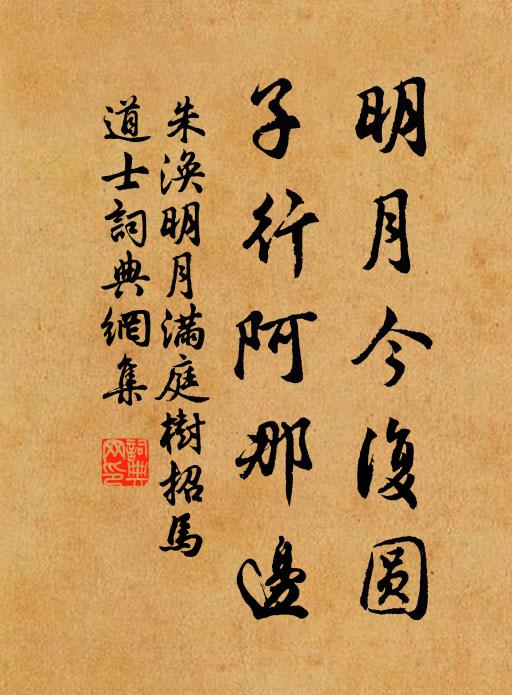 明月今復圓
子行阿那邊
朱渙明月滿庭樹招馬
道士詞典網集
詞典网印